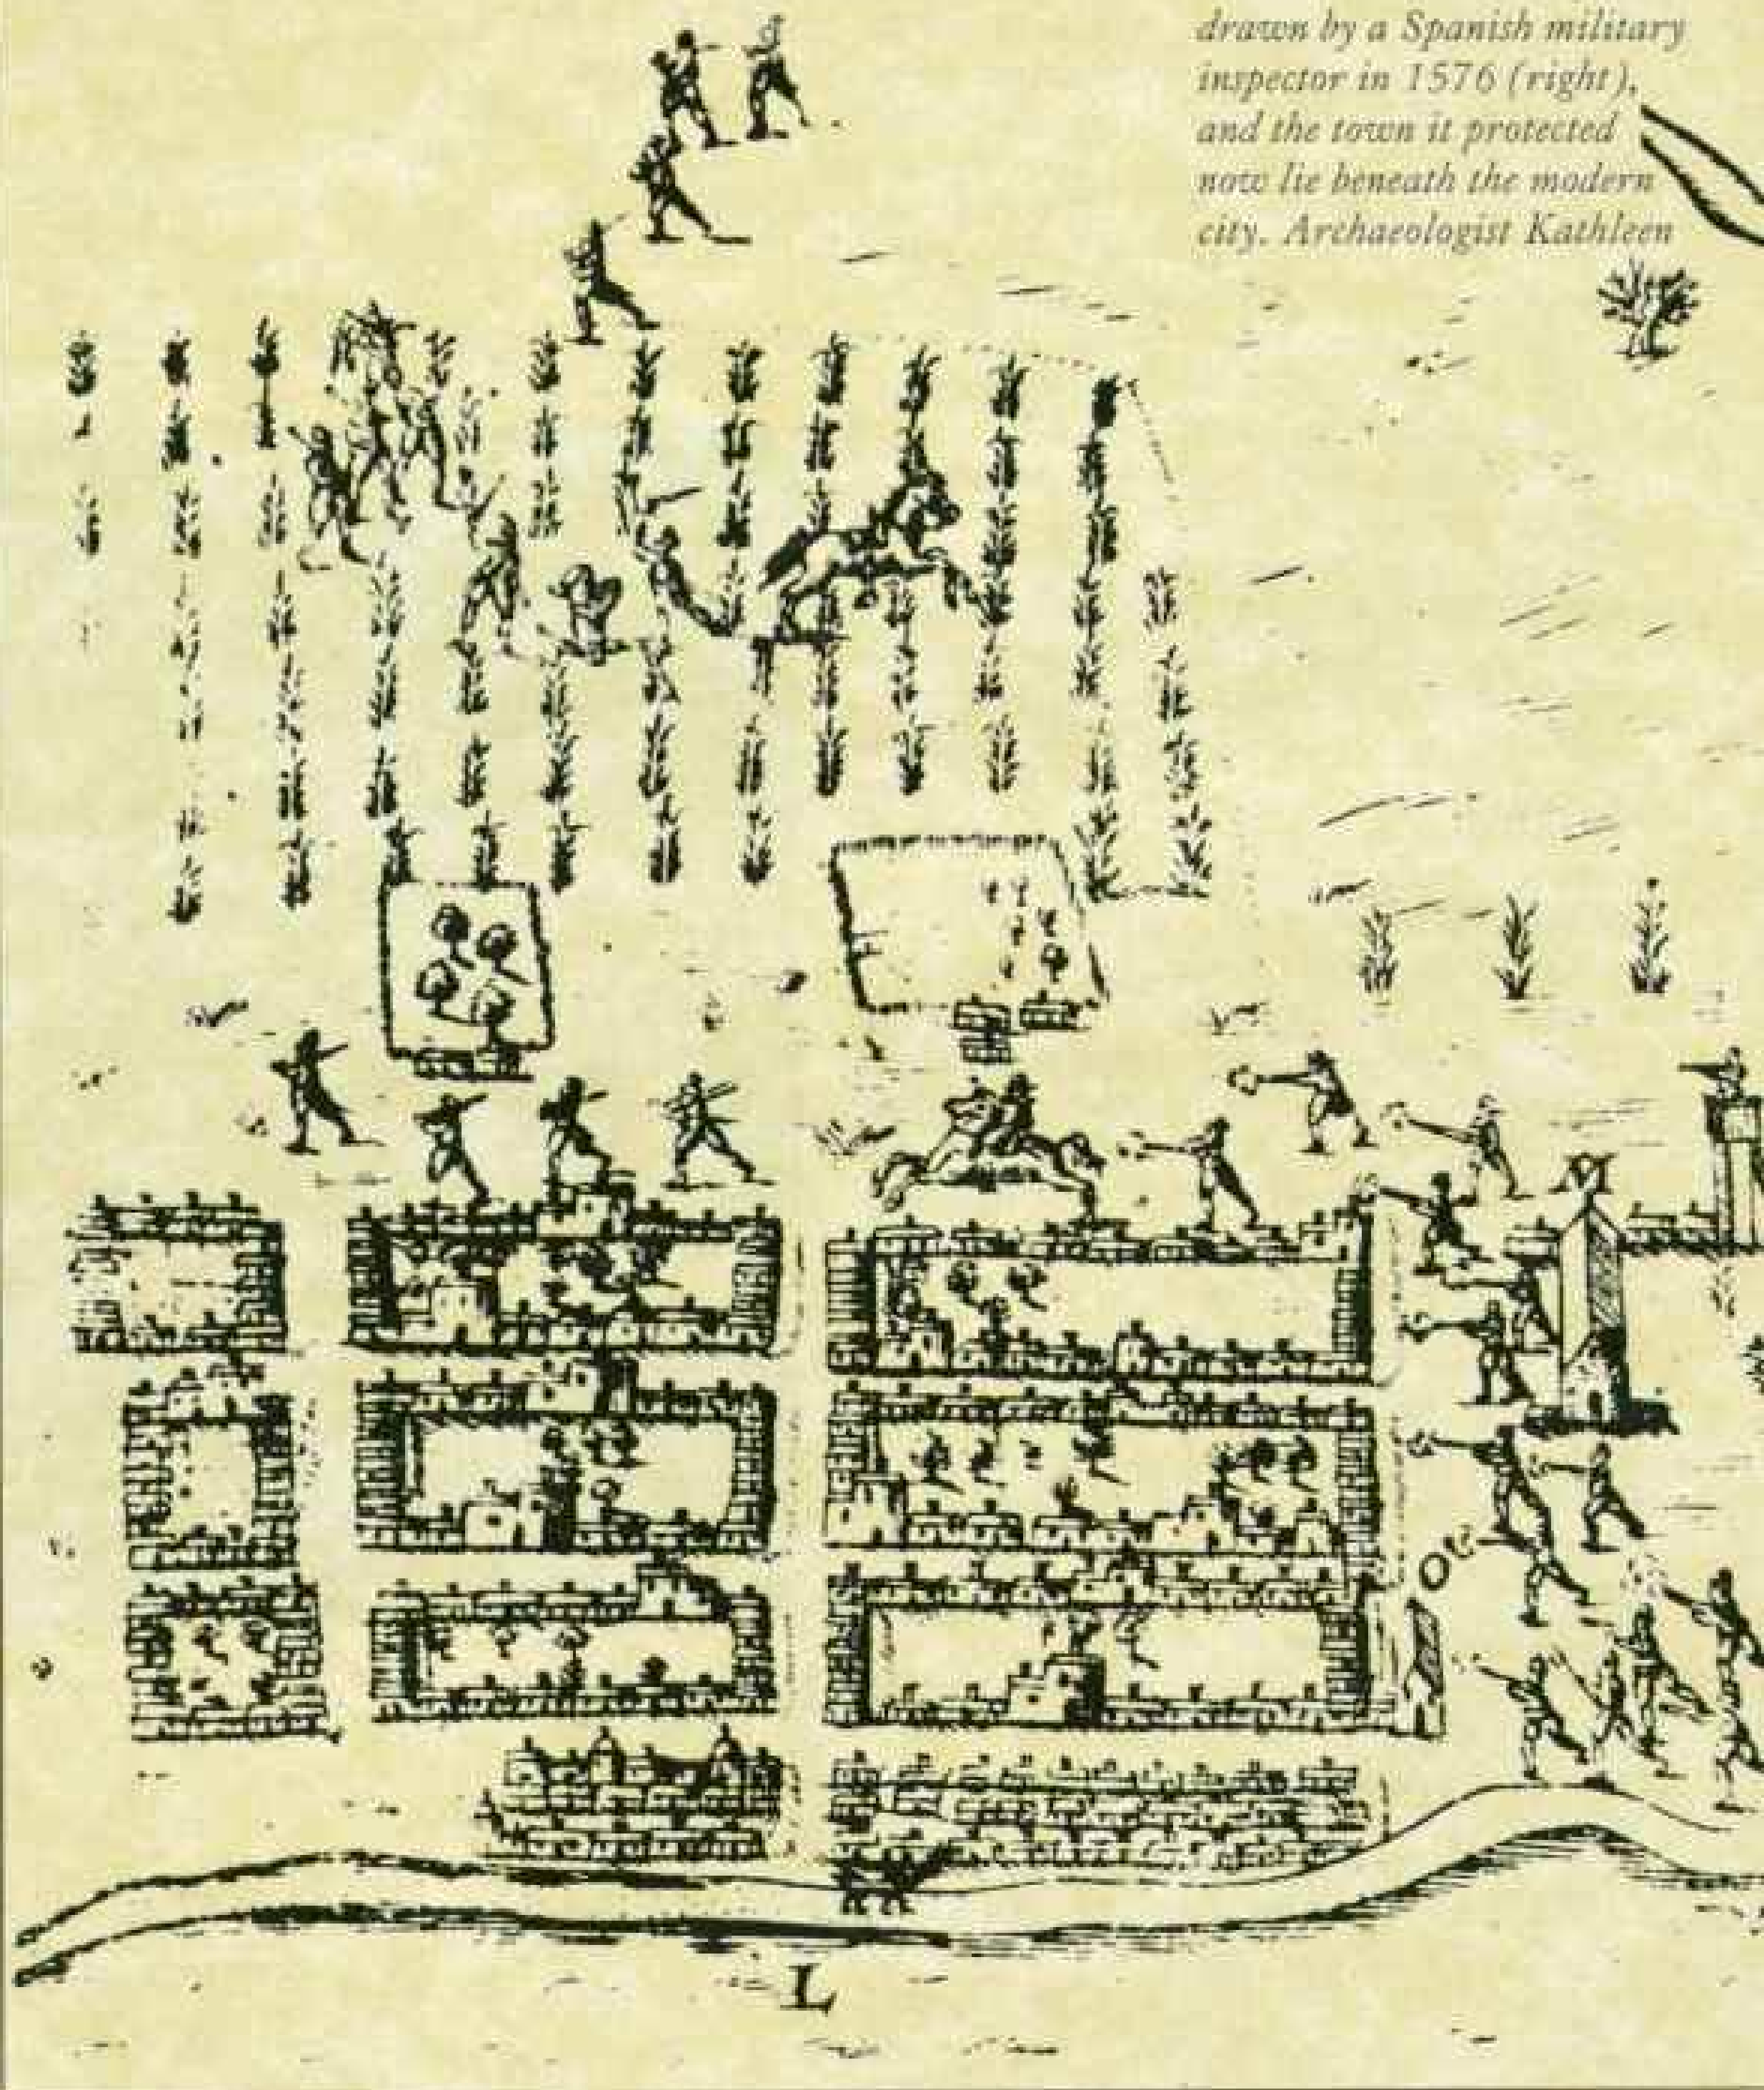 drawn by a Spanish military
inspector in 1576 (right),
and the town it protected
now lie beneath the modern
city. Archaeologist Kathleen
M
L